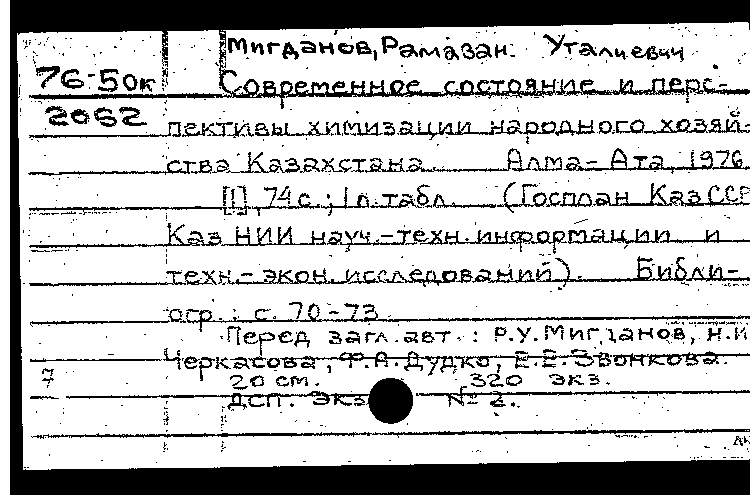 Мигданов, Рамазан Уталиевич
76-50к Современное состояние и перс-
2062 пективы химизации народного хозяй-
ства Казахстана. Алма-Ата, 1976.
[1], 74 с.; 1 л. табл. (Госплан КазССР
Каз НИИ науч.-техн. информации и
техн.-экон. исследований). Библи-
огр.: с. 70-73
Перед загл. авт.: Р.У. Мигданов, Н.И.
Черкасова, Ф.А. Дудко, Е.Е. Звонкова.
20 см. 320 экз.
ДСП. Экз № 2.